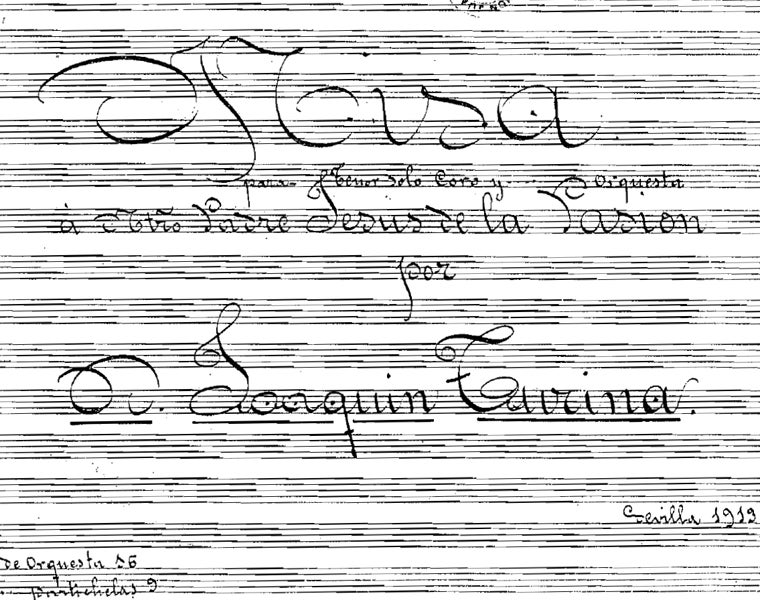 Misa
para Tenor solo Coro y Orquesta
à Ntrõ Padre Jesus de la Pasion
por
D. Joaquin Turina.
Sevilla
de Orquesta
partichelas 9